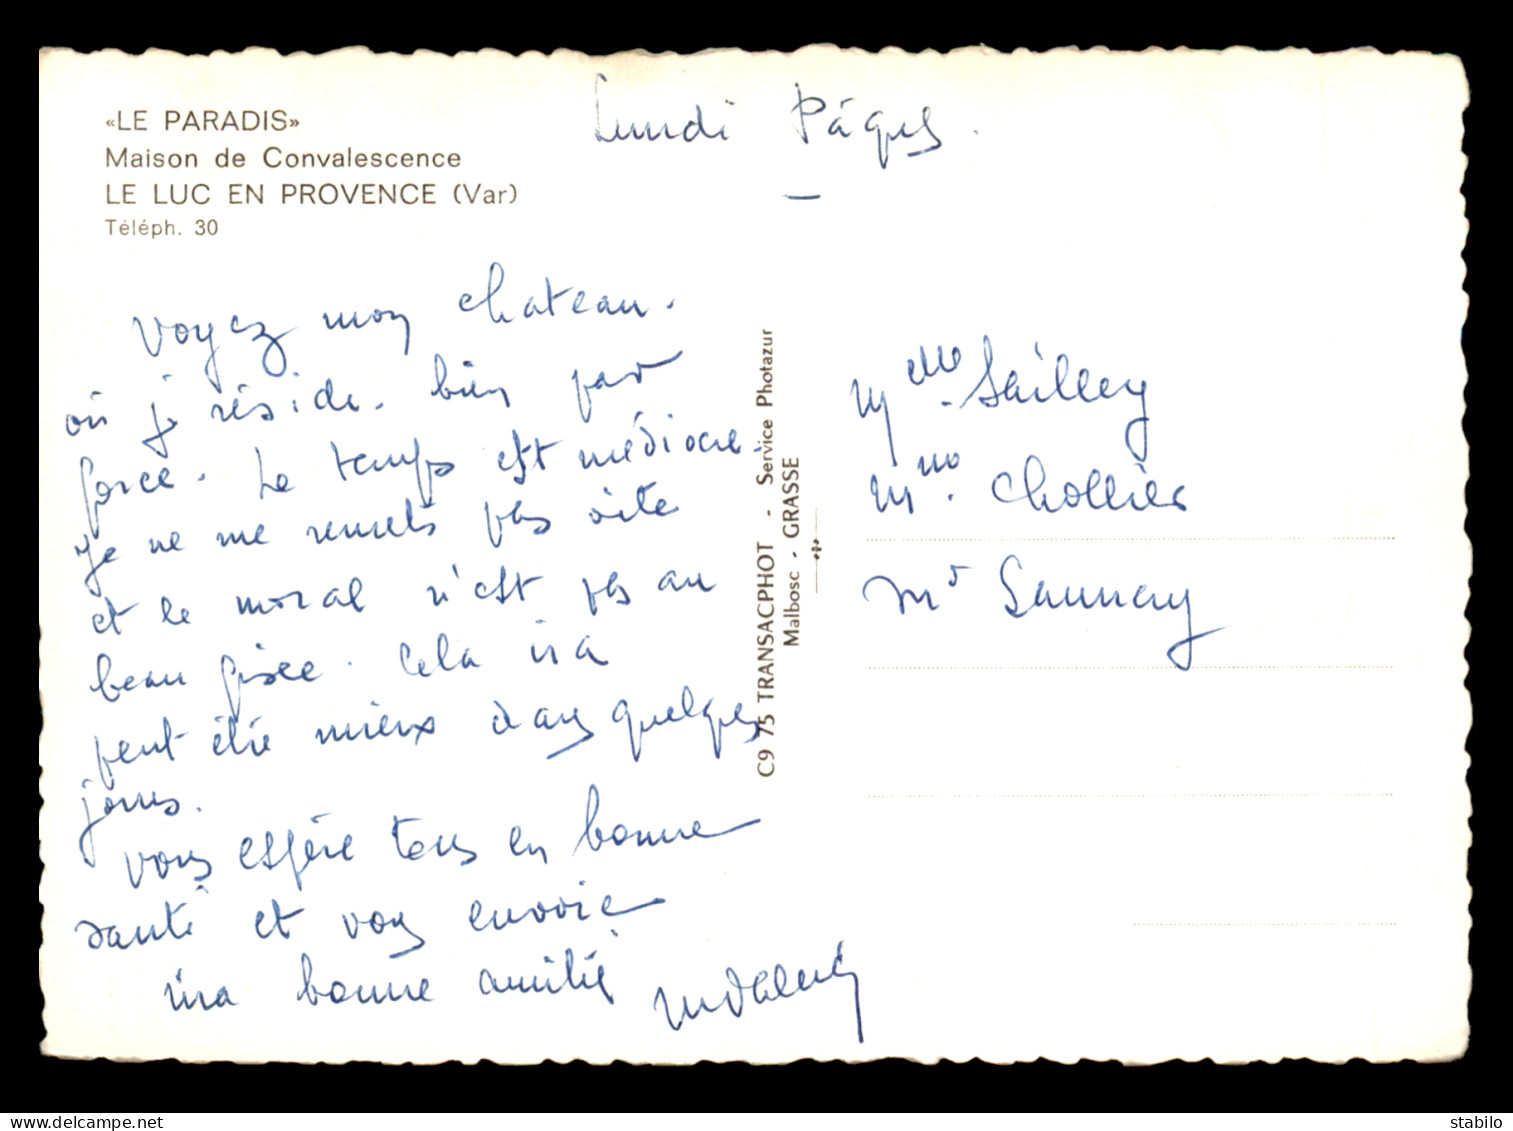 «LE PARADIS»
Maison de Convalescence
LE LUC EN PROVENCE (Var)
Téléph. 30
Lundi Pâques.
Voyez mon chateau.
où je réside. bien par
force. Le temps est médiocre
je ne me remets pas vite
et le moral n'est pas au
beau fixe. Cela ira
peut être mieux dans quelques
jours.
vous espère tous en bonne
santé et vous envoie
ma bonne amitié
C9 75 TRANSACPHOT - Service Photazur
Malbosc - GRASSE
Melle Sailley
Mme. Chollier
Mr Saunay
delcampe.net
stabilo